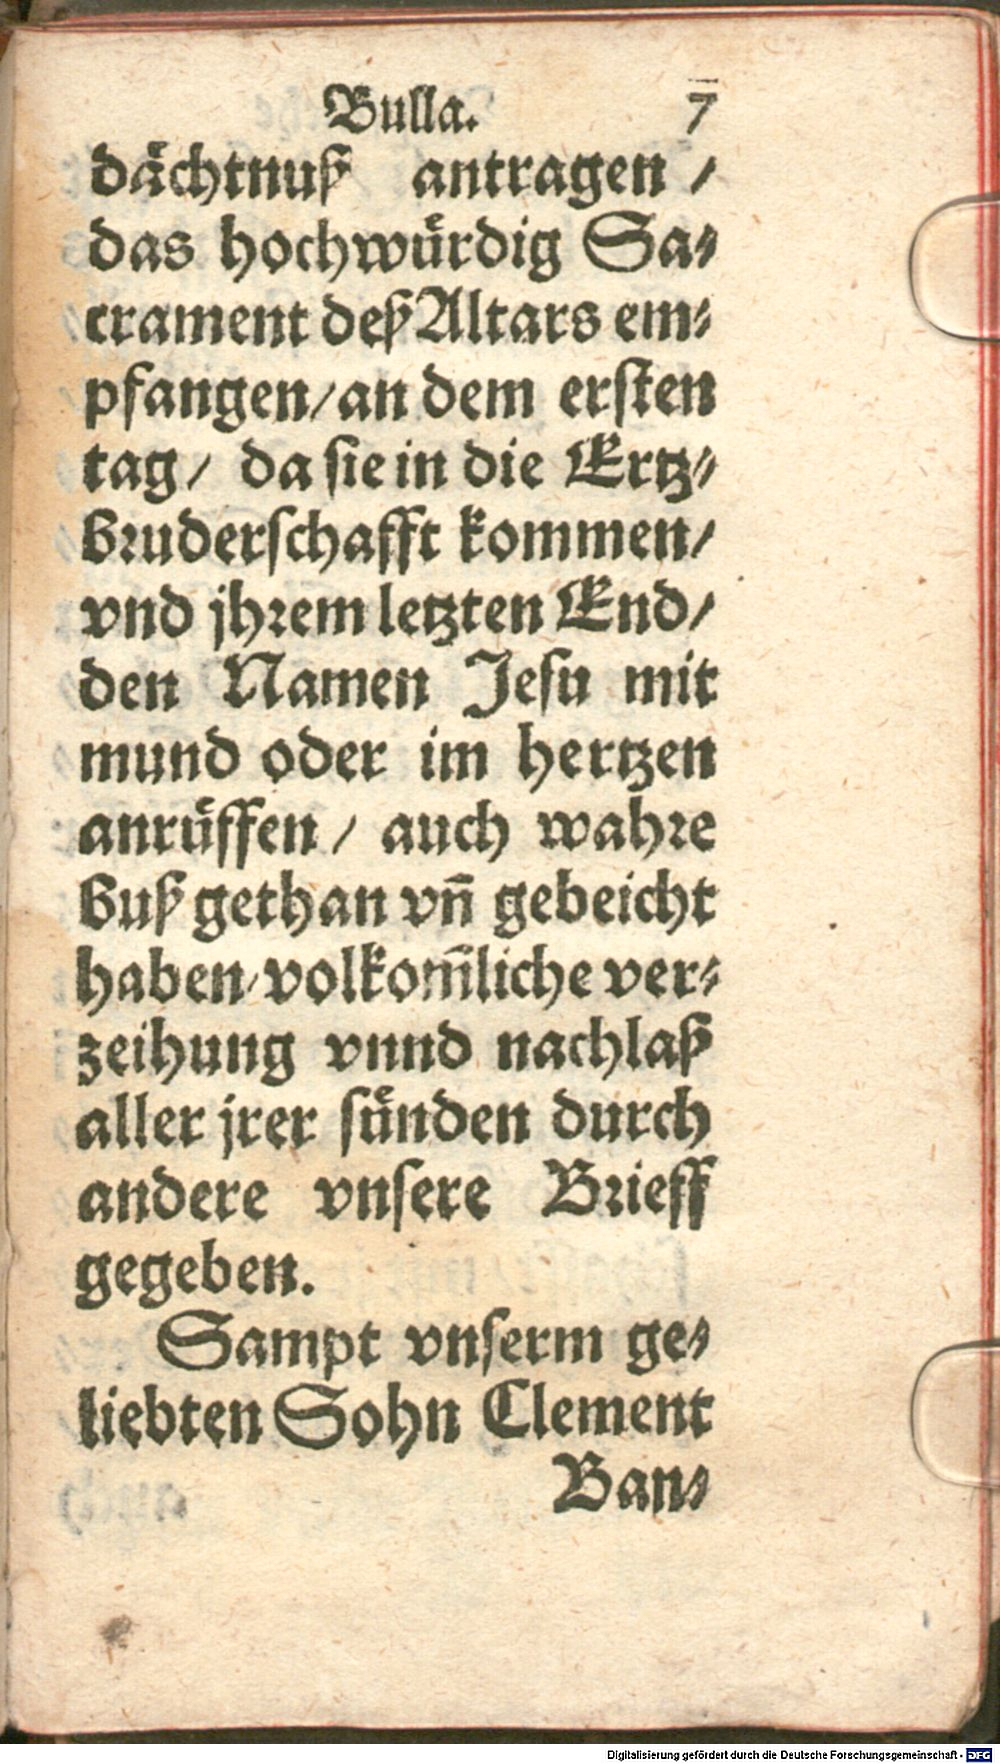 Bulla. 7
dächtnuß antragen /
das hochwürdig Sa-
crament deß Altars em-
pfangen/ an dem ersten
tag/ da sie in die Ertz-
bruderschafft kommen/
vnd jhrem letzten End/
den Namen Jesu mit
mund oder im hertzen
anrüffen / auch wahre
Buß gethan vn̄ gebeicht
haben/ volkom̄liche ver-
zeihung vnnd nachlaß
aller jrer sünden durch
andere vnsere Brieff
gegeben.
Sampt vnserm ge-
liebten Sohn Clement
Ban-
Digitalisierung gefördert durch die Deutsche Forschungsgemeinschaft - DFG